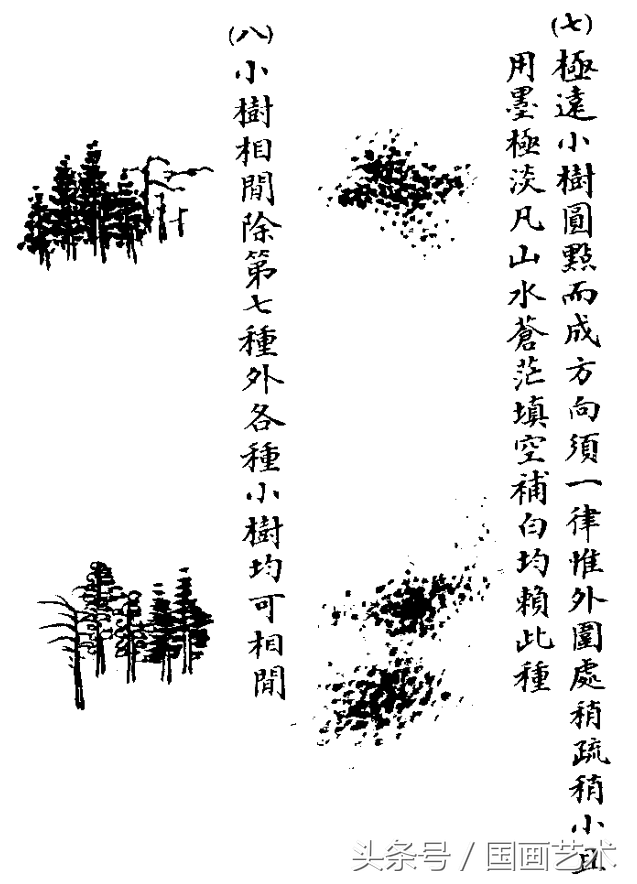 (七)
極遠小樹圓點而成方向須一律惟外圍處稍疏稍小且
用墨極淡凡山水蒼茫填空補白均賴此種
(八)
小樹相間除第七種外各種小樹均可相間
头条号/国画艺术